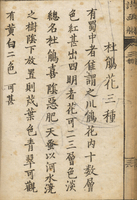 杜鵑花三種
有蜀中者佳謂之川鵑花内十數層
色紅甚出四明者花可二三層色淡
總名杜鵑喜陰惡肥天蚤以河水澆
之樹陰下放置則茂葉色青翠可觀
有黄白二色可甚